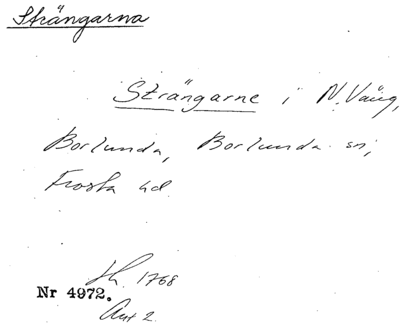 Strängarna
Strängarne i N. Vång,
Borlunda, Borlunda sn,
Frosta hd.
Sh. 1768
Nr 4972.
Akt 2